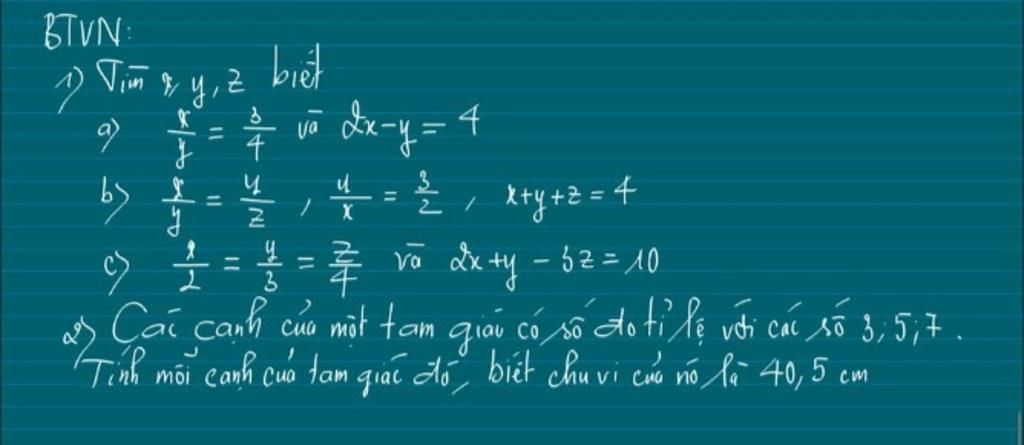 BTVN:
1) Tìm x, y, z biết
a) x/y = 3/4 và 2x-y = 4
b) x/y = y/z , y/x = 3/2 , x+y+z = 4
c) x/2 = y/3 = z/4 và 2x+y - 3z = 10
2) Các cạnh của một tam giác có số đo tỉ lệ với các số 3; 5; 7.
Tính mỗi cạnh của tam giác đó, biết chu vi của nó là 40,5 cm